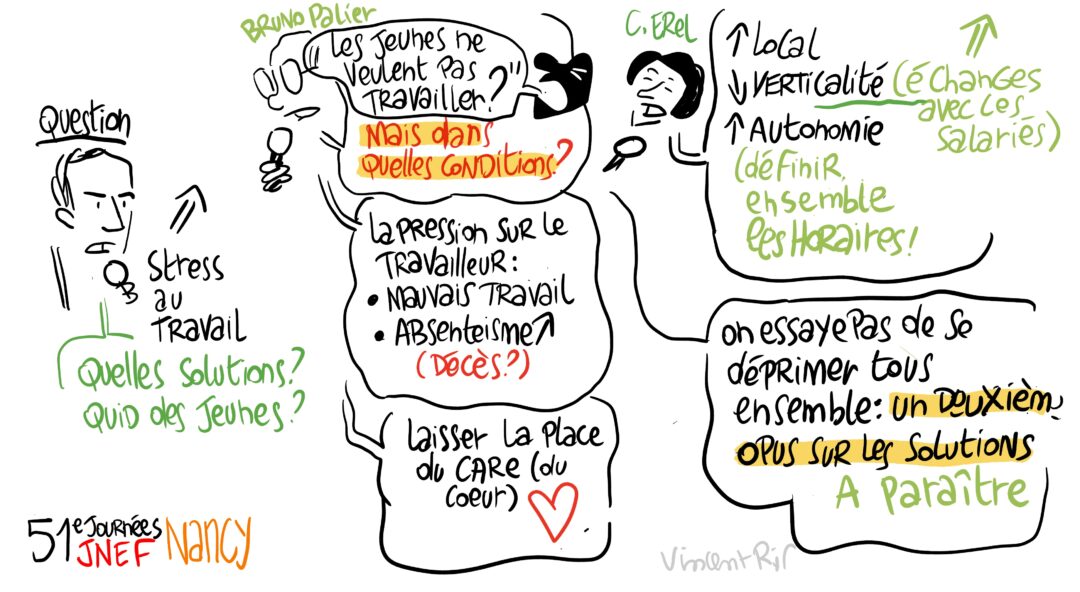 Question
Stress
au
Travail
Quelles solutions?
Quid des jeunes?
51e Journées
JNEF Nancy
Bruno Palier
Les jeunes ne
veulent pas
travailler?"
Mais dans
quelles conditions?
La pression sur le
travailleur:
• Mauvais travail
• Absenteisme
(Décès?)
Laisser la place
du care (du
coeur)
C. Erel
Local
Verticalité (échanges
avec les
salariés)
Autonomie
(définir
ensemble
les horaires!
on essaye pas de se
déprimer tous
ensemble: un deuxièm
opus sur les solutions
A paraître
Vincent